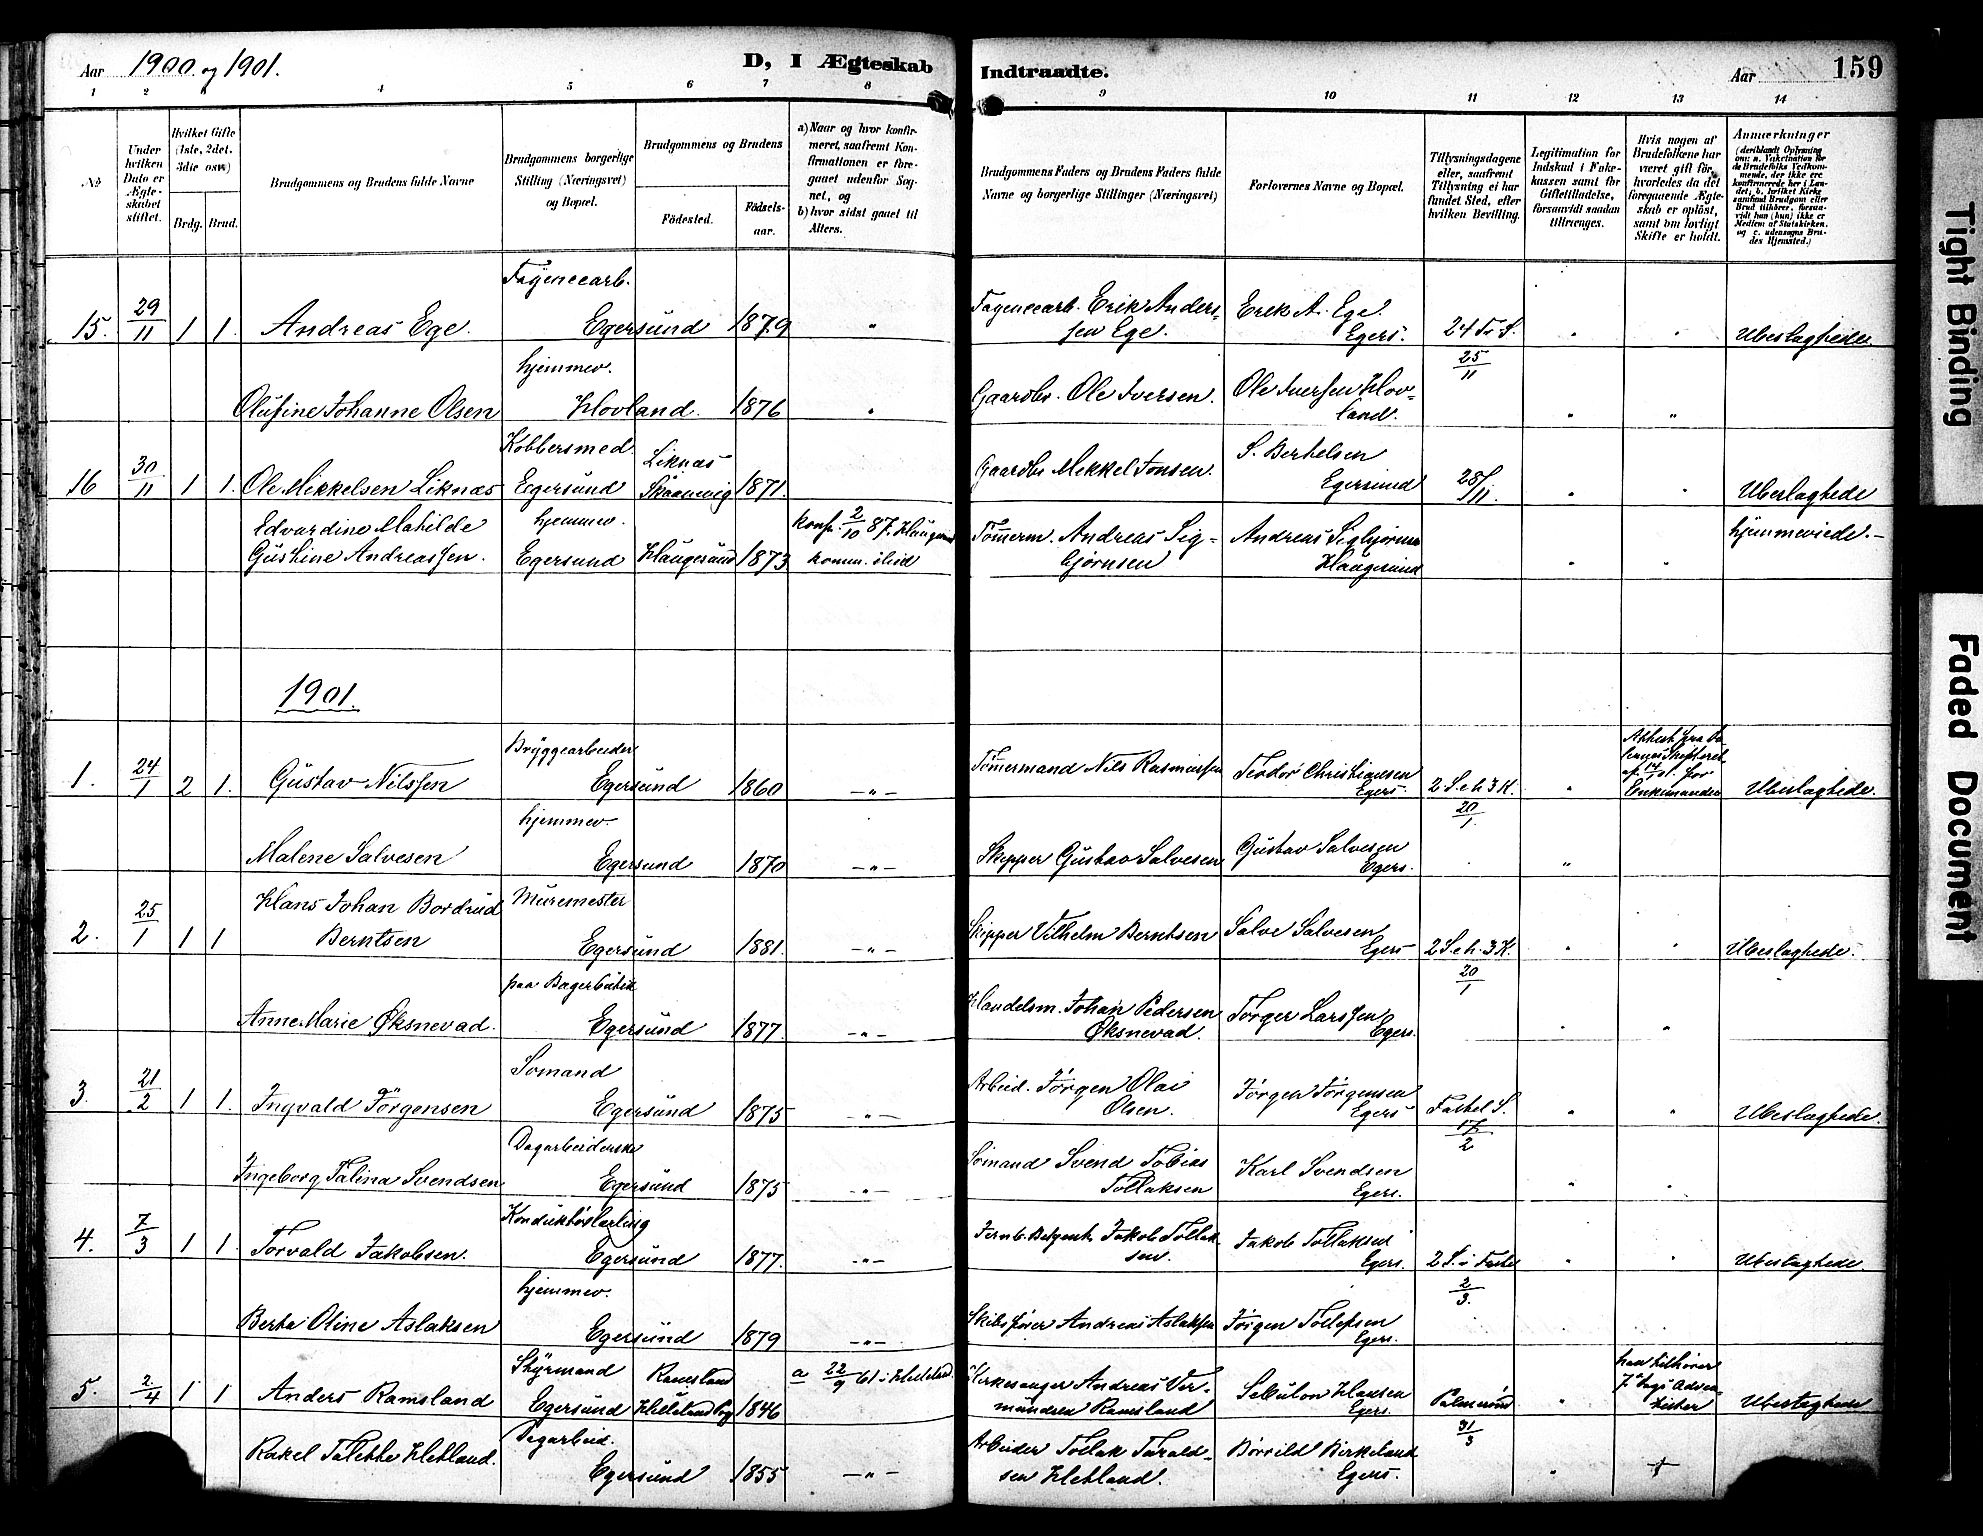 Aar 1900 og 1901.
D, I Ægteskab
Indtraadte.
Aar
159
1 2 3 4 5 6 7 8 9 10 11 12 13 14
No
Under hvilken Dato er Ægteskabet stiftet.
Hvilket Gifte (1ste, 2det. 3die osv.)
Brdg. Brud.
Brudgommens og Brudens fulde Navne
Brudgommens borgerlige Stilling (Næringsvei) og Bopæl.
Brudgommens og Brudens
Födested.
Födselsaar.
a) Naar og hvor konfirmeret, saafremt Konfirmationen er foregaaet udenfor Sognet, og
b) hvor sidst gaaet til Alters.
Brudgommens Faders og Brudens Faders fulde Navne og borgerlige Stillinger (Næringsvei)
Forlovernes Navne og Bopæl.
Tillysningsdagene eller, saafremt Tillysning ei har fundet Sted, efter hvilken Bevilling.
Legitimation for Indskud i Enkekassen samt for Giftetilladelse, forsaavidt saadan tiltrænges.
Hvis nogen af Brudefolkene har været gift för, hvorledes da det foregaaende Ægteskab er oplöst, samt om lovligt Skifte er holdt.
Anmærkninger
15. 29/11 1 1. Andreas Ege. Fayencearb. Egersund 1879 " Fayencearb. Erik Anderssen Ege. Erik A. Ege. Egers. 24 Tr. S. 25/11 " " Ubeslægtede
Olufine Johanne Olsen hjemmev. Hovland. 1876 " Gaardbr. Ole Iversen. Ole Iversen Hovland. " "
16 30/11 1 1. Ole Mikkelsen Liknæs Kobbersmed. Egersund Liknæs Skaanevig 1871. Gaardbr Mekkel Jonsen. S. Berhelsen Egersund 28/11. " " Ubeslægtede
Edvardine Mathilde Gustine Andreassen. hjemmev. Egersund Haugesund 1873 konf. 2/10 87. Haugesund Tömerm. Andreas Sigbjørnsen Andreas Sigbjørnsen Haugesund " " hjemmeviede.-
1901.
1. 24/1 2 1. Gustav Nilssen Bryggearbeider Egersund 1860 -"- Tömermand Nils Rasmussen Teodor Christiansen Egers 2 S. e. h. 3 K. 20/1. " Ubeslægtede.
Malene Salvesen hjemmev. Egersund 1870 -"- Skipper Gustav Salvesen Gustav Salvesen Egers. "
2. 25/1 1 1 Hans Johan Bordrud Berntsen Muremester Egersund 1881. -"- Skipper Vilhelm Berntsen Salve Salvesen Egers 2 S. e. h. 3 K. 20/1 " " Ubeslægtede.
Anne Marie Øksnevad. paa Bagerbutik Egersund 1877. -"- Handelsm. Johan Pedersen Øksnevad. Torger Larssen Egers. " "
3. 21/2 1 1. Ingvald Jörgensen Sömand Egersund 1875 -"- Arbeid. Jörgen Olai Olsen. Jörgen Jörgensen Egers Fastel S. 17/2 " " Ubeslægtede.
Ingeborg Talina Svendsen Dagarbeiderske Egersund 1875 -"- Sömand Svend Tobias Tollaksen Karl Svendsen Egers. " "
4. 7/3 1 1. Torvald Jakobsen. Konduktörlærling Egersund 1877. -"- Jernb. Betjent Jakob Tollaksen. Jakob Tollaksen Egers. 2 S. i Faste 2/3. " " Ubeslægtede.
Berta Oline Aslaksen hjemmev. Egersund 1879 -"- Skibsfører Andreas Aslaksen Jörgen Tollefsen Egers.
5. 2/4 1 1 Anders Ramsland Styrmand Egersund Ramsland 1846 a 22/9 61 i Helleland. Kirkesanger Andreas Vermundsen Ramsland Sebulon Hansen Egers. Palmesönd 31/3 " han tilhører 7 Dags Adventister Ubeslægtede
Rakel Talette Hetland. Dagarbeid. Egersund 1855 -"- Arbeider Tollak Taraldsen Hetland. Börrild Birkeland Egers. "
Tight Binding
Faded Document